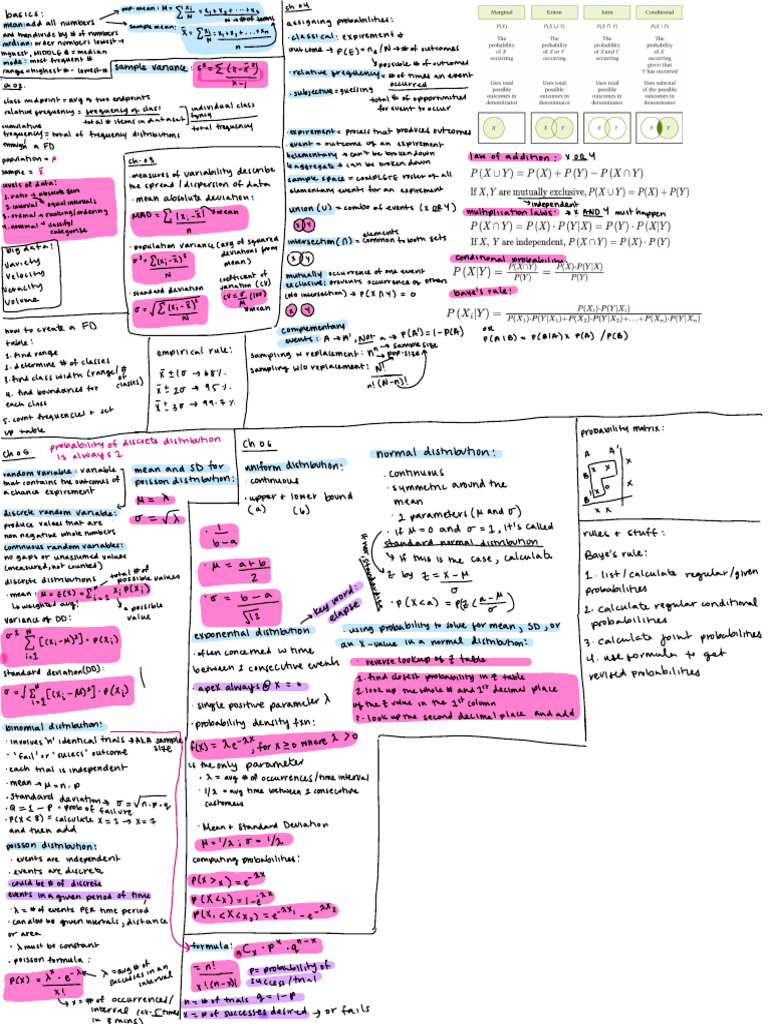 basics:
mean: add all numbers
and then divide by # of numbers
median: order numbers lowest →
highest, MIDDLE # = median
mode: most frequent #
range = highest # - lowest #
pop. mean: μ = Σxi/N = x1+x2+...+xN / N → # of items
sample mean: x̄ = Σxi/n = x1+x2+...+xn / n
sample variance: s² = Σ(x-x̄)²
ch 02:
class midpoint = avg of two endpoints
relative frequency = frequency of class / total # items in dataset
individual class fqncy / total frequency
cumulative
frequency = total of frequency distributions
through a FD
population = μ
sample = x̄
levels of data:
1. ratio → absolute zero
2. interval → equal intervals
3. ordinal → ranking/ordering
4. nominal → classify/
categorize
big data:
Variety
Velocity
Veracity
Volume
ch. 03
· measures of variability describe
the spread / dispersion of data
· mean absolute deviation:
MAD = Σ|xi - x̄| / n → mean
· population variance (avg of squared
deviations from
mean)
σ² = Σ(xi-μ)² / N
· standard deviation
σ = √Σ(xi-x̄)² / N
coefficient of
variation (CV)
CV = σ/μ (100)
→ mean
how to create a FD
table:
1. find range
2. determine # of classes
3. find class width (range/# of classes)
4. find boundaries for
each class
5. count frequencies + set
up table
empirical rule:
x̄ ± 1σ → 68%
x̄ ± 2σ → 95%
x̄ ± 3σ → 99.7%
ch 04
assigning probabilities:
· classical: expirement &
outcome → P(E) = ne/N → # of outcomes
→ possible # of outcomes
· relative frequency = # of times an event
occurred
total # of opportunities
for event to occur
· subjective = guessing
expirement = process that produces outcomes
event = outcome of an expirement
elementary → can't be broken down
aggregate → can be broken down
sample space = COMPLETE roster of all
elementary events for an expirement
union (∪) = combo of events (X OR Y)
X Y
intersection (∩) = elements common to both sets
X Y
mutually occurrence of one event
exclusive: prevents occurrence of others
(no intersection) → P(X∩Y) = 0
X Y
complementary
events: A → A', Not A → P(A') = 1-P(A)
sampling w replacement: nⁿ → sample size
→ pop. size
sampling w/o replacement: N! / n!(N-n)!
Marginal Union Joint Conditional
P(X) P(X ∪ Y) P(X ∩ Y) P(X | Y)
The probability of X occurring
The probability of X or Y occurring
The probability of X and Y occurring
The probability of X occurring given that Y has occurred
Uses total possible outcomes in denominator
Uses total possible outcomes in denominator
Uses total possible outcomes in denominator
Uses subtotal of the possible outcomes in denominator
X
X Y
X Y
X Y
law of addition: X OR Y
P(X ∪ Y) = P(X) + P(Y) − P(X ∩ Y)
If X, Y are mutually exclusive, P(X ∪ Y) = P(X) + P(Y)
→ independent
multiplication laws: → X AND Y must happen
P(X ∩ Y) = P(X) · P(Y|X) = P(Y) · P(X|Y)
If X, Y are independent, P(X ∩ Y) = P(X) · P(Y)
conditional probability
P(X|Y) = P(X∩Y)/P(Y) = P(X)·P(Y|X)/P(Y)
baye's rule:
P(Xi|Y) = P(Xi)·P(Y|Xi) / P(X1)·P(Y|X1)+P(X2)·P(Y|X2)+...+P(Xn)·P(Y|Xn)
OR
P(A|B) = P(B|A) x P(A) / P(B)
ch 05
probability of discrete distribution
is always 1
random variable: variable
that contains the outcomes of
a chance expirement
discrete random variable:
produce values that are
non negative whole numbers
continuous random variables:
no gaps or unassumed values
(measured, not counted)
discrete distributions
→ total # of possible values
· mean: μ = E(X) = Σ xi P(xi)
→ a possible value
↳ weighted avg.
variance of DD:
σ² Σ [(xi-μ)²] · P(xi)
i=1
standard deviation (DD):
σ = √Σ [(xi-μ)²] · P(xi)
mean and SD for
poisson distribution:
μ = λ
σ = √λ
binomial distribution:
· involves 'n' identical trials → AKA sample size
· 'fail' or 'sucess' outcome
· each trial is independent
· mean → μ = n·p
· standard deviation → σ = √n·p·q
· Q = 1 - P → prob of failure
· P(X < 8) = calculate X=1 → X=7
and then add
poisson distribution:
· events are independent
· events are discrete
could be # of discrete
events in a given period of time
· λ = # of events PER time period
· can also be given intervals, distance
or area
· λ must be constant
· poisson formula:
P(X) = λˣ·e^-λ / x!
← λ = avg # of
successes in an
interval
→ x = # of occurrences/
interval
in 3 mins)
ch 06
uniform distribution:
· continuous
· upper + lower bound
(a) (b)
· 1 / b-a
· μ = a+b / 2
· σ = b-a / √12
key word:
elapse
exponential distribution
· often concerned w time
between 2 consecutive events
· apex always @ x = 0
· single positive parameter λ
· probability density fxn:
f(x) = λe^-λx, for x ≥ 0 where λ > 0
is the only parameter
· λ = avg # of occurrences/time interval
· 1/λ = avg time between 2 consecutive
customers
· Mean + Standard Deviation
μ = 1/λ ; σ = 1/λ
computing probabilities:
P(X > x) = e^-λx
P(X < x) = 1-e^-λx
P(x1 < X < x2) = e^-λx1 - e^-λx2
formula: nCx · pˣ · q^n-x
= n! / x!(n-x)!
p = probability of
success/trial
n = # of trials q = 1-p
x = # of successes desired → or fails
normal distribution:
· continuous
· symmetric around the
mean
· 2 parameters (μ and σ)
· if μ = 0 and σ = 1, it's called
standard normal distribution
↳ if this is the case, calculate
z by z = X-μ / σ
· P(X<a) = P(z < a-μ / σ)
· using probability to solve for mean, SD, or
an X-value in a normal distribution:
· reverse lookup of z table
1. find closest probability in z table
2. look up the whole # and 1st decimal place
of the z value in the 1st column
3. look up the second decimal place and add
probability matrix:
A A'
B x x x
B' x 0 x
x x
rules + stuff:
Baye's rule:
1. list/calculate regular/given
probabilities
2. calculate regular conditional
probabilities
3. calculate joint probabilities
4. use formula to get
revised probabilities